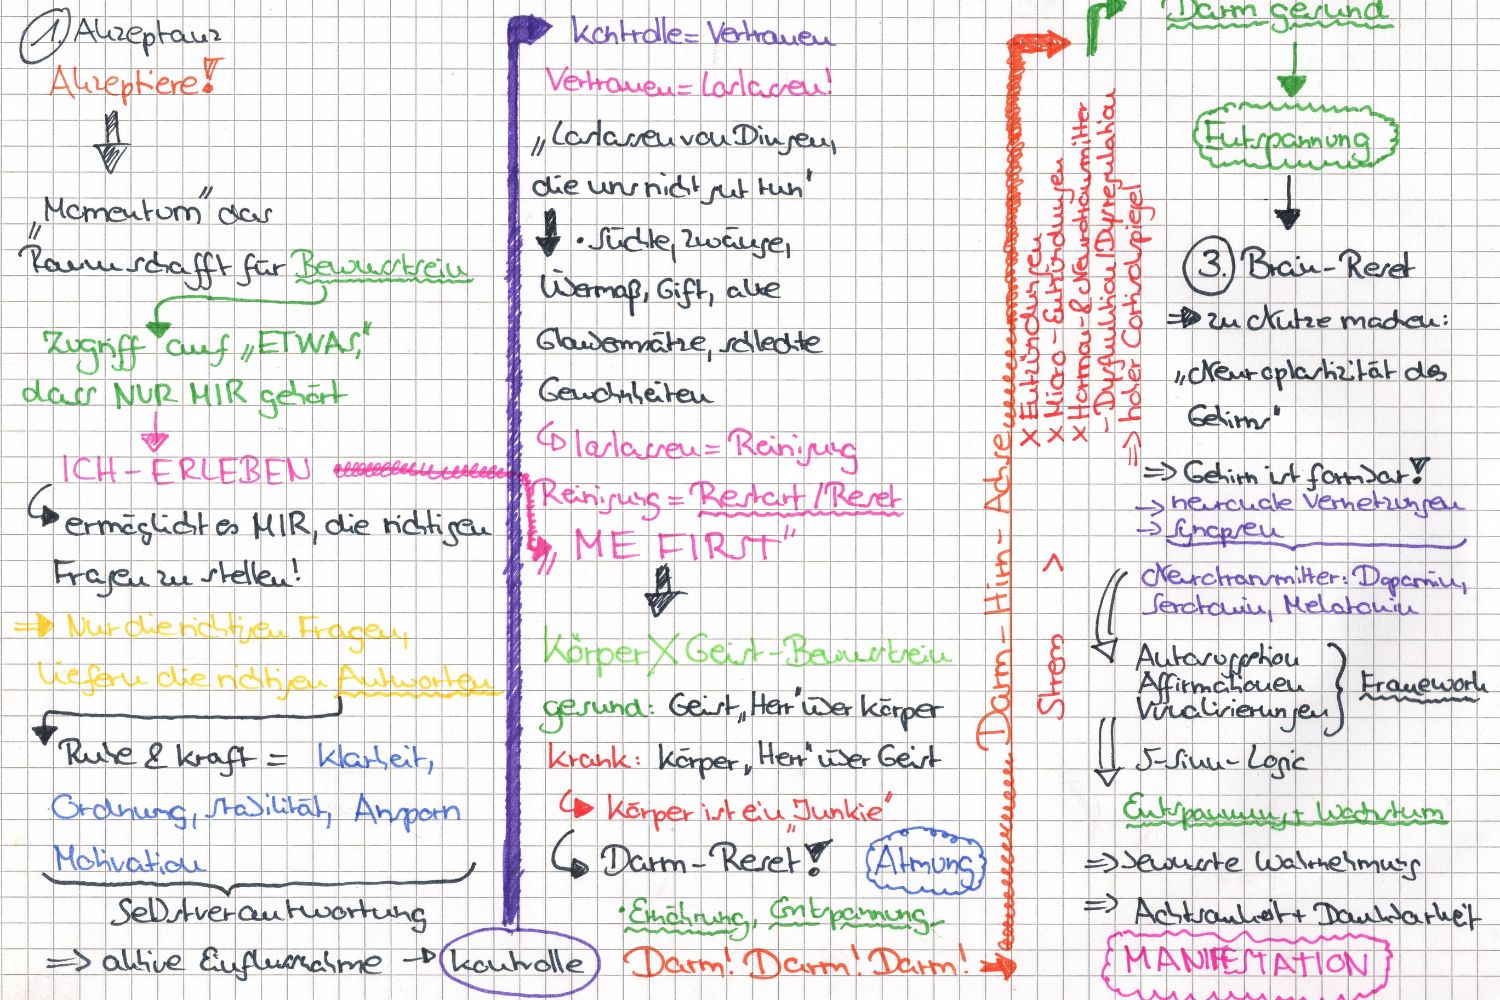 1. Akzeptanz
Akzeptiere!
„Momentum" das
Raum schafft für Bewusstsein
Zugriff auf „ETWAS,"
dass NUR MIR gehört
ICH-ERLEBEN
ermöglicht es MIR, die richtigen
Fragen zu stellen!
⇒ Nur die richtigen Fragen,
liefern die richtigen Antworten
Ruhe & Kraft = Klarheit,
Ordnung, Stabilität, Ansporn
Motivation
Selbstverantwortung
⇒ aktive Einflussnahme → Kontrolle
Kontrolle = Vertrauen
Vertrauen = Loslassen!
„Loslassen von Dingen,
die uns nicht gut tun"
• Süchte, Zwänge,
Übermaß, Gift, alte
Glaubenssätze, schlechte
Gewohnheiten
↪ loslassen = Reinigung
Reinigung = Restart/Reset
„ME FIRST"
Körper X Geist-Bewusstsein
gesund: Geist „Herr" über Körper
krank: Körper „Herr" über Geist
↪ Körper ist ein „Junkie"
↪ Darm-Reset!
Atmung
• Ernährung, Entspannung
Darm! Darm! Darm!
Darm-Hirn-Achse
Stress >
x Entzündungen
x Micro-Entzündungen
x Hormon- & Neurotransmitter
- Dysfunktion/Dysregulation
⇒ hoher Cortisolspiegel
Darm gesund
Entspannung
3. Brain-Reset
⇒ zu Nutze machen:
„Neuroplastizität des
Gehirns"
⇒ Gehirn ist formbar!
→ neuronale Vernetzungen
→ Synapsen
Neurotransmitter: Dopamin,
Serotonin, Melatonin
Autosuggestion
Affirmationen
Visualisierungen
Framework
5-Sinn-Logic
Entspannung + Wachstum
⇒ bewusste Wahrnehmung
⇒ Achtsamkeit + Dankbarkeit
MANIFESTATION